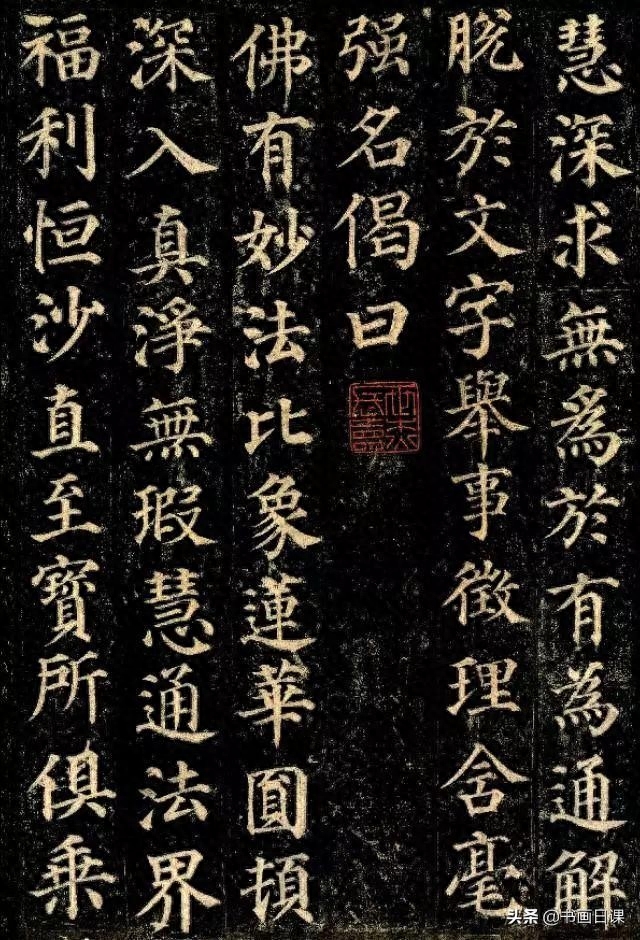 慧深求無爲於有為通解
脫於文字舉事徵理含毫
强名偈曰
佛有妙法比象蓮華圓頓
深入真淨無瑕慧通法界
福利恒沙直至寶所俱乘
头条 @书画日课